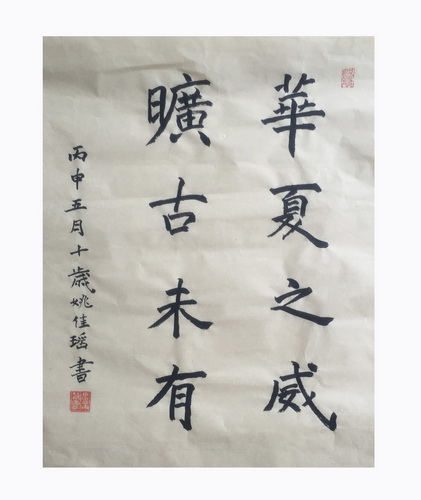 華夏之威
曠古未有
丙申五月十歲姚佳瑶書